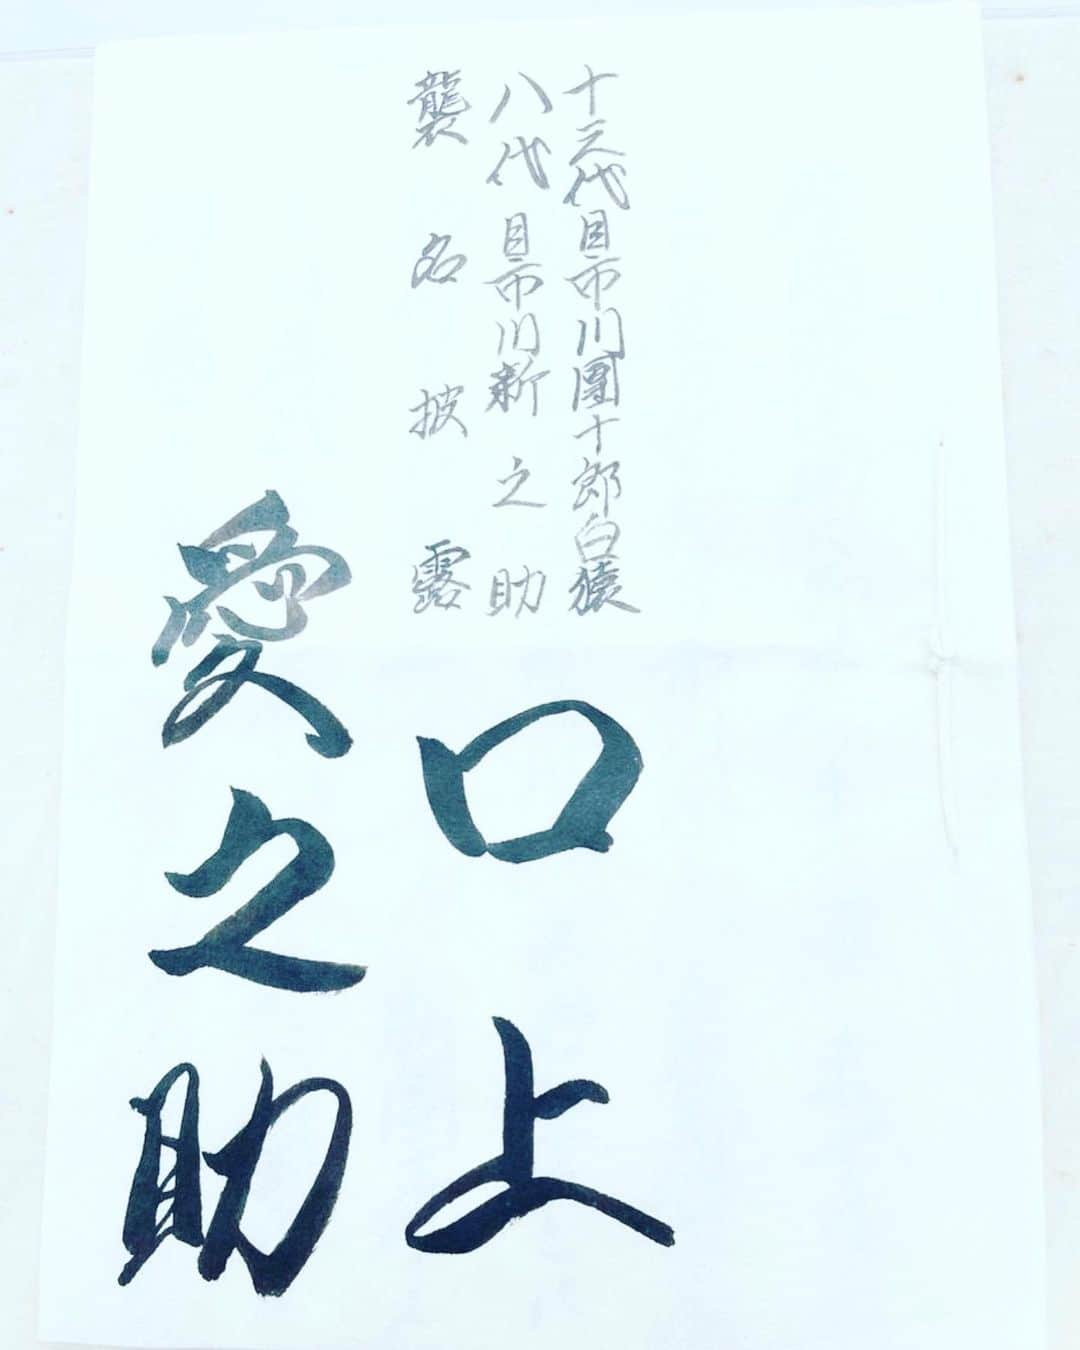 十三代目市川團十郎白猿
八代目市川新之助
襲名披露
口上
愛之助